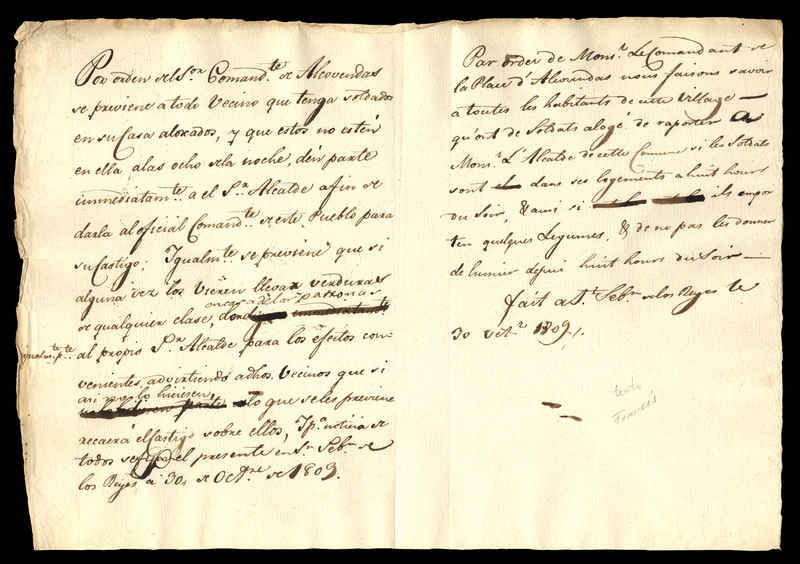 Por orden del S.or Comand.te de Alcovendas
se previene a todo Vecino que tenga soldados
en su Casa aloxados, y que estos no estén
en ella, alas ocho dela noche, dén parte
immediatam.te a el S.r Alcalde a fin de
darla al oficial Comand.te de este Pueblo para
su Castigo; Igualm.te se previene que si
alguna vez los vieren llevar verduras
de qualquier clase,
al propio S.r Alcalde para los efectos con-
venientes, advirtiendo adhos. Vecinos que si
asi no lo hiciesen
lo que seles previene
recaerá el Castigo sobre ellos, Y p.a noticia de
todos el presente en S.n Seb.n de
los Reyes á 30 de Oct.re de 1809.
Par order de Mons.r Le Comandant de
la Place d'Alcovendas nous faisons savoir
a toutes les habitants de cette Village
qu'ont de Soldats alogé de raporter
Mons.r L'Alcalde de cette Comune si les Soldats
sont dans ses logements a huit hours
du Soir, & ausi si ils empor
ten quelques Legumes, & de no pas les donner
de lumier depuis huit hours du Soir
fait a S.t Seb.n delos Reyes le
30 oct.re 1809
texto
Francés